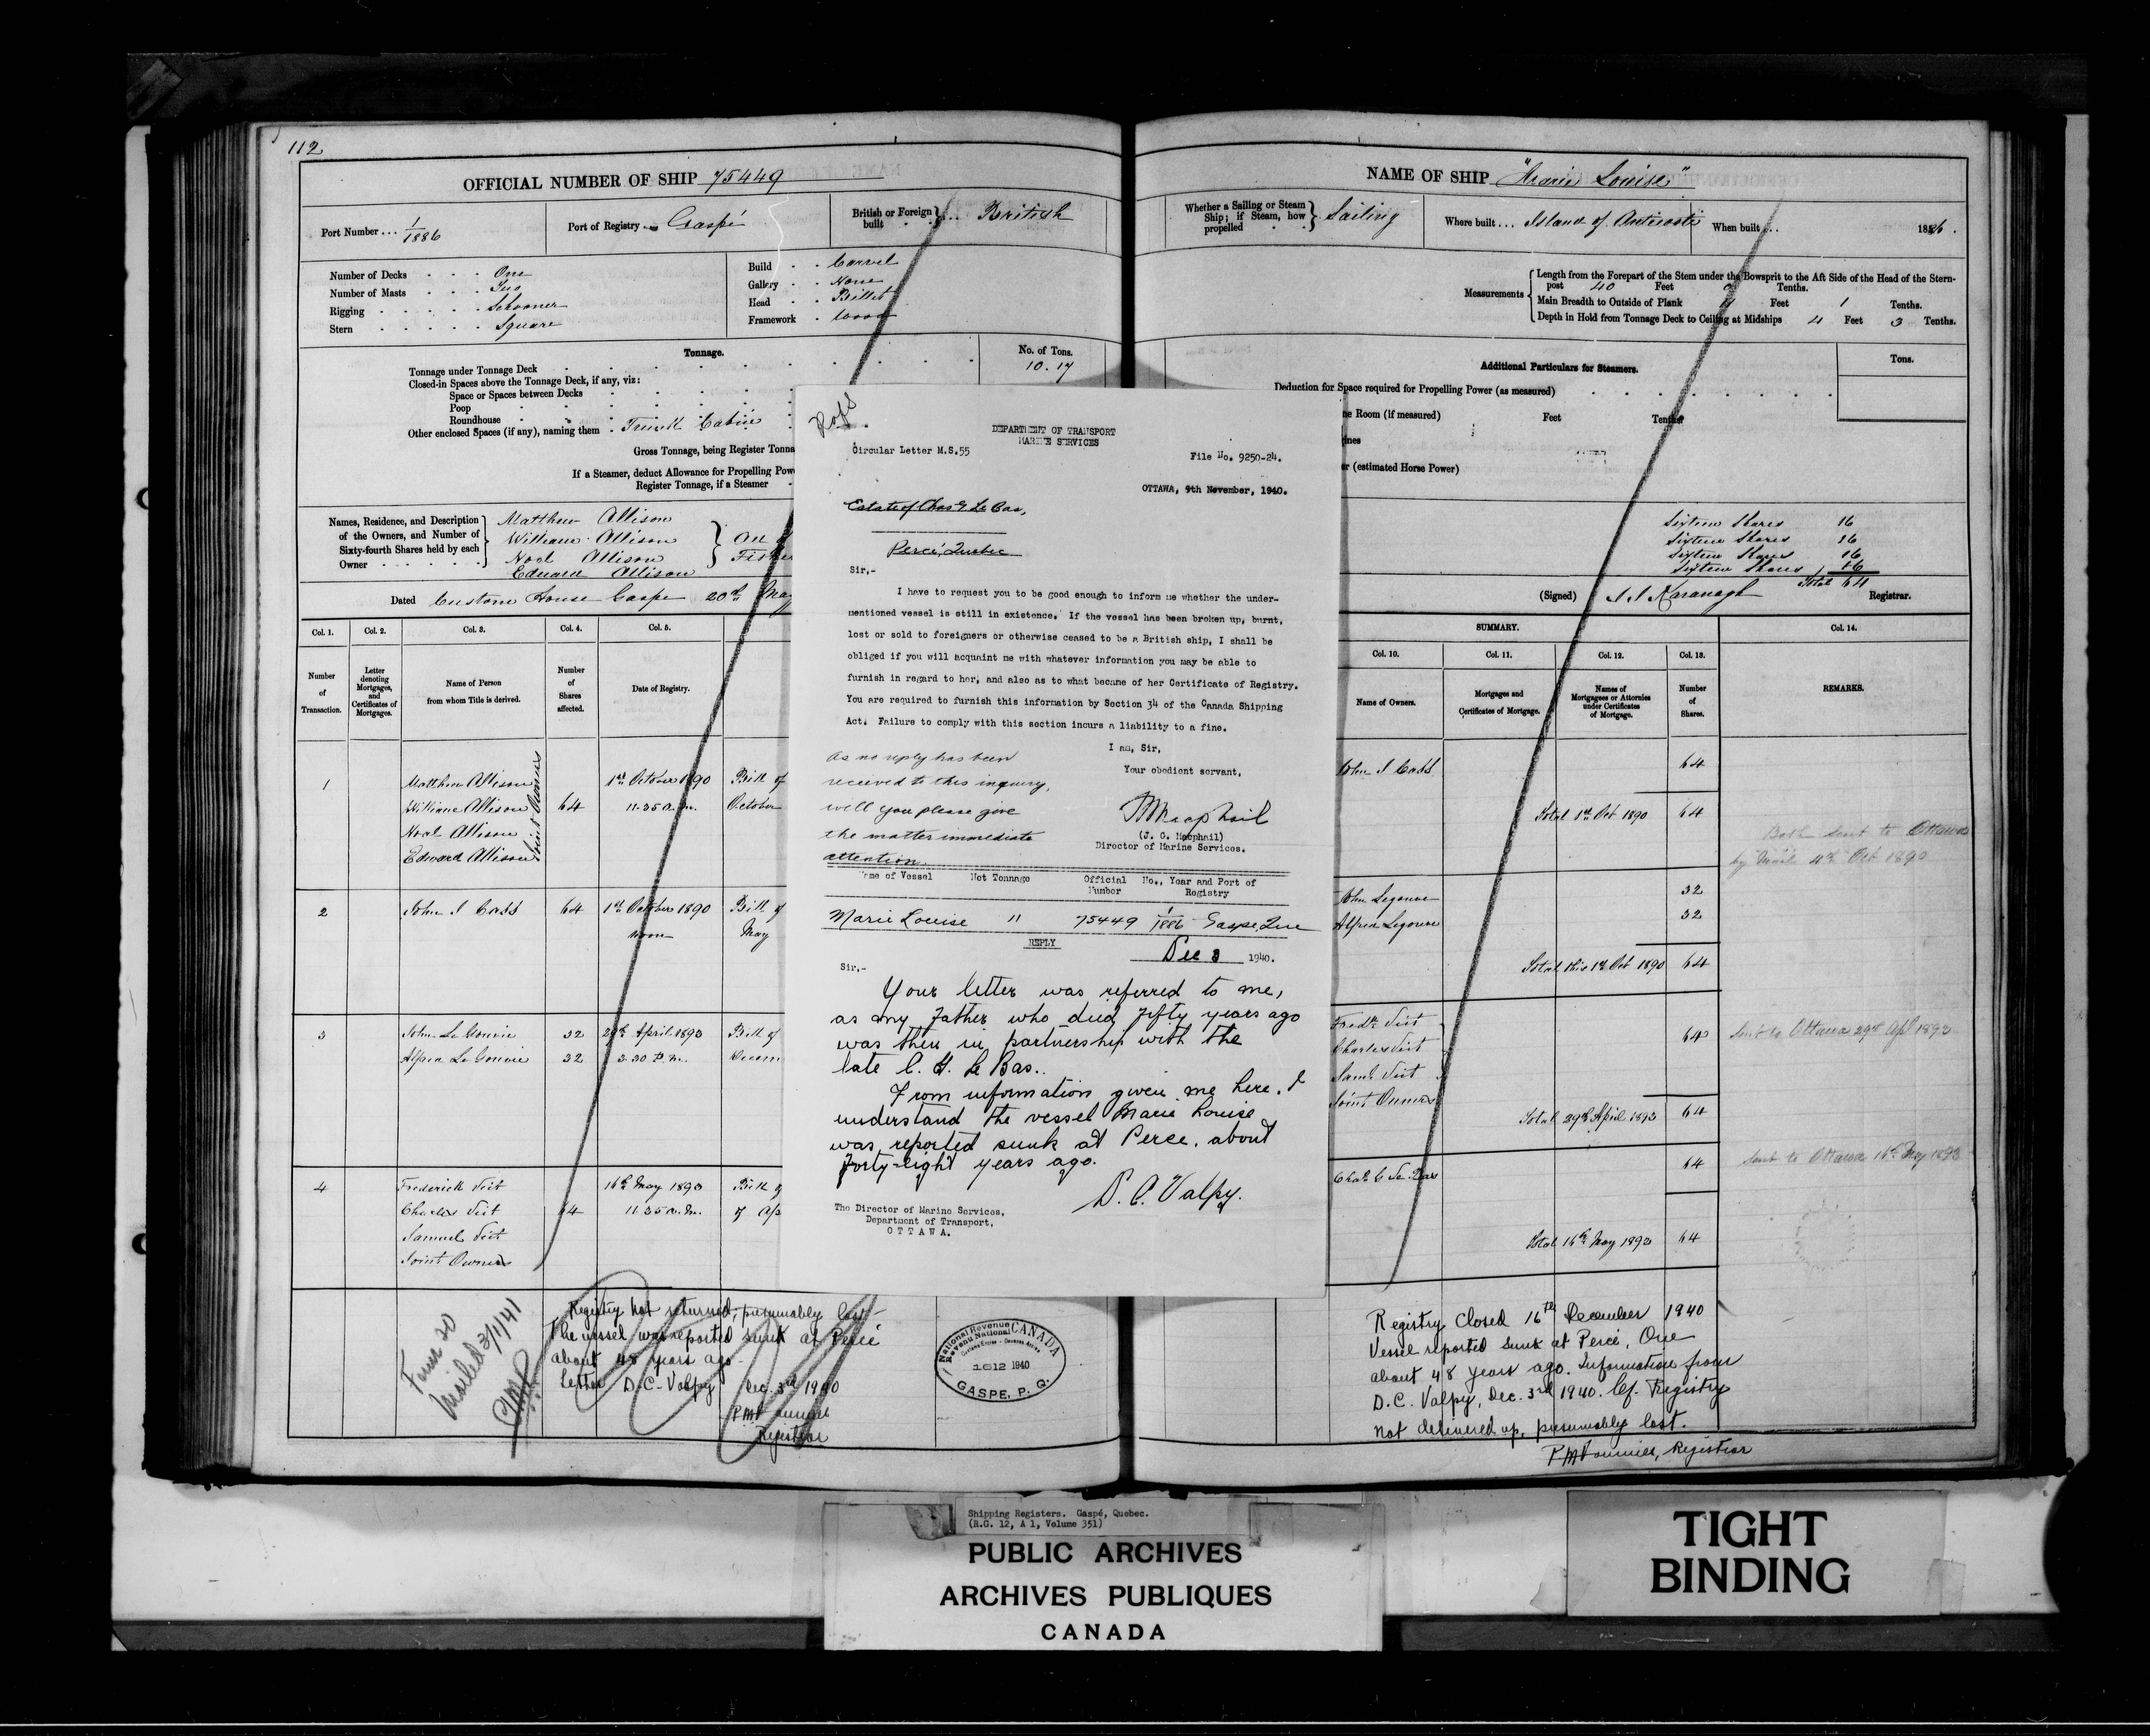 112
OFFICIAL NUMBER OF SHIP 75449
Port Number ... 1/1886
Port of Registry Gaspé
British or Foreign built } ... British
Number of Decks One
Number of Masts Two
Rigging Schooner
Stern Square
Build Carvel
Gallery None
Head Billet
Framework Wood
Tonnage. No. of Tons.
Tonnage under Tonnage Deck 10.17
Closed-in Spaces above the Tonnage Deck, if any, viz:
Space or Spaces between Decks
Poop
Roundhouse
Other enclosed Spaces (if any), naming them Trunk Cabin
Gross Tonnage, being Register Tonna
If a Steamer, deduct Allowance for Propelling Powe
Register Tonnage, if a Steamer
Names, Residence, and Description of the Owners, and Number of Sixty-fourth Shares held by each Owner
Matthew Allison
William Allison
Noel Allison
Edward Allison
Dated Custom House Gaspé 20th May
Col. 1. Col. 2. Col. 3. Col. 4. Col. 5.
Number of Transaction.
Letter denoting Mortgages, and Certificates of Mortgages.
Name of Person from whom Title is derived.
Number of Shares affected.
Date of Registry.
1 Matthew Allison 1st October 1890 Bill of
William Allison 64 11.35 a.m. October
Noel Allison
Edward Allison
Joint Owners
2 John J Cass 64 1st October 1890 Bill of
noon May
3 John Le Gouvie 32 29th April 1893 Bill of
Le Gouvie 32 3.30 P.m.
4 Frederick Veit 16th May 1893 Bill of
Charles Veit 64 11.35 a.m. of
Samuel Veit
Joint Owners
Form 20
Mailed 3/1/41
PMF
Registry not returned; presumably lost
The vessel was reported sunk at Percé
about 48 years ago
Letter D.C. Valpy Dec. 3rd 1940
Registrar
National Revenue
Revenu National
CANADA
1612 1940
GASPE, P. Q.
DEPARTMENT OF TRANSPORT
MARINE SERVICES
Circular Letter M.S.55
File No. 9250-24.
OTTAWA, 9th November, 1940.
Estate of Chas G Le Bas,
Percé, Quebec
Sir,-
I have to request you to be good enough to inform me whether the under-
mentioned vessel is still in existence. If the vessel has been broken up, burnt,
lost or sold to foreigners or otherwise ceased to be a British ship, I shall be
obliged if you will acquaint me with whatever information you may be able to
furnish in regard to her, and also as to what became of her Certificate of Registry.
You are required to furnish this information by Section 34 of the Canada Shipping
Act. Failure to comply with this section incurs a liability to a fine.
I am, Sir,
Your obedient servant,
As no reply has been
received to this inquiry,
will you please give
the matter immediate
attention.
JMacphail
(J. G. Macphail)
Director of Marine Services.
Name of Vessel Net Tonnage Official Number No., Year and Port of Registry
Marie Louise 11 75449 1/1886 Gaspe, Que
REPLY
Dec 3 1940.
Sir,-
Your letter was referred to me,
as my Father who died fifty years ago
was then in partnership with the
late C. G. Le Bas.
From information given me here. I
understand the vessel Marie Louise
was reported sunk at Perce. about
forty-eight years ago.
D. C. Valpy.
The Director of Marine Services,
Department of Transport,
OTTAWA.
NAME OF SHIP "Marie Louise"
Whether a Sailing or Steam Ship; if Steam, how propelled } Sailing
Where built ... Island of Anticosti
When built ... 1886.
Measurements
Length from the Forepart of the Stem under the Bowsprit to the Aft Side of the Head of the Stern-
post 40 Feet Tenths.
Main Breadth to Outside of Plank Feet 1 Tenths.
Depth in Hold from Tonnage Deck to Ceiling at Midships 4 Feet 3 Tenths.
Additional Particulars for Steamers. Tons.
Deduction for Space required for Propelling Power (as measured)
ne Room (if measured) Feet Tenths
ines
er (estimated Horse Power)
Sixteen Shares 16
Sixteen Shares 16
Sixteen Shares 16
Sixteen Shares 16
Total 64
(Signed) J J Kavanagh Registrar.
SUMMARY.
Col. 10. Col. 11. Col. 12. Col. 13. Col. 14.
Name of Owners.
Mortgages and Certificates of Mortgage.
Names of Mortgagees or Attornies under Certificates of Mortgage.
Number of Shares.
REMARKS.
John J Cass 64
Total 1st Oct 1890 64
Both sent to Ottawa
by Mail 4th Oct 1890
John Legouvie 32
Legouvie 32
Total this 1st Oct 1890 64
Fredk Veit
Charles Veit 64
Saml Veit
Joint Owners
Sent to Ottawa 29th Apl 1893
Total 29th April 1893 64
Chas G Le Bas 64
Sent to Ottawa 16th May 1893
Total 16th May 1893 64
Registry Closed 16th December 1940
Vessel reported sunk at Percé, Que
about 48 years ago. Information from
D.C. Valpy, Dec. 3rd 1940. Cf. Registry
not delivered up, presumably lost.
Registrar
Shipping Registers. Gaspé, Quebec.
(R.G. 12, A 1, Volume 351)
PUBLIC ARCHIVES
ARCHIVES PUBLIQUES
CANADA
TIGHT
BINDING